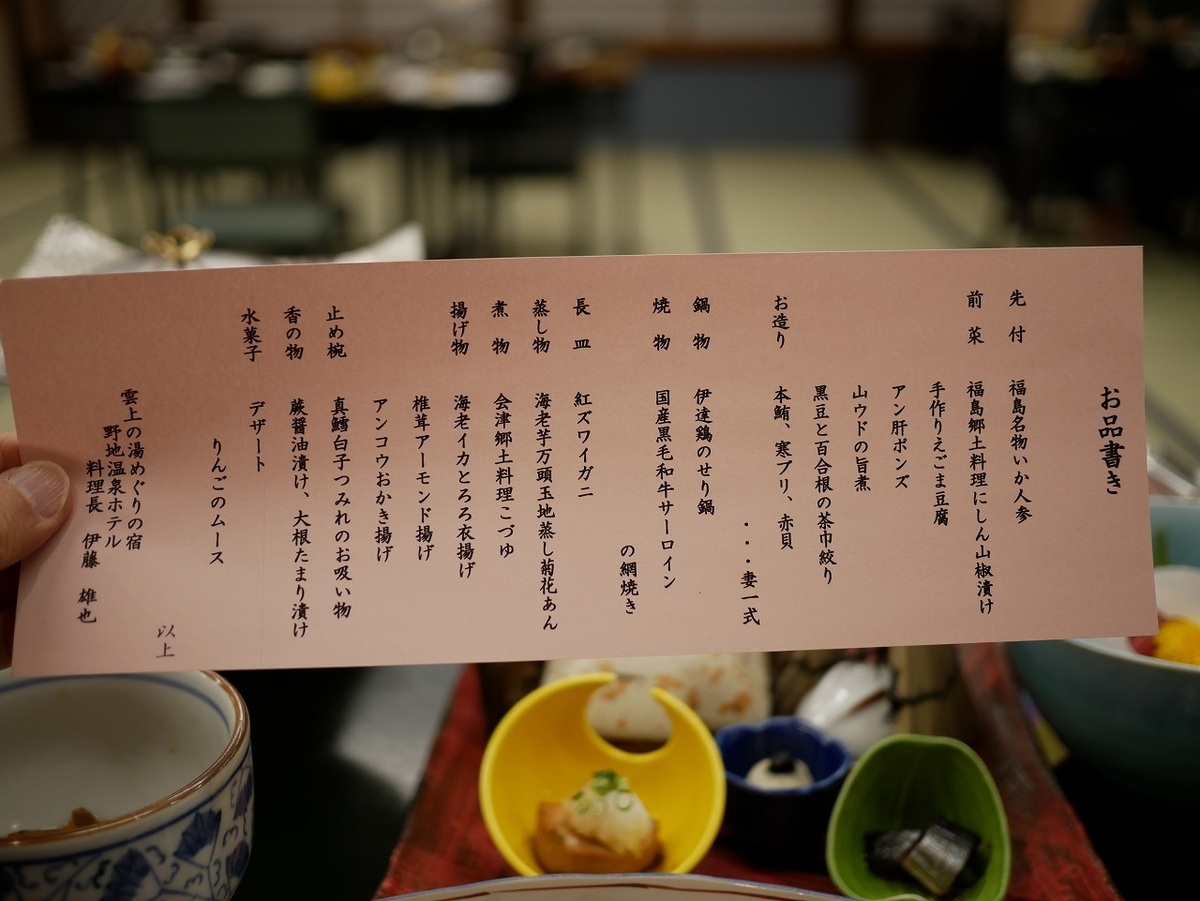 お品書き
先付 福島名物いか人参
前菜 福島郷土料理にしん山椒漬け
手作りえごま豆腐
アン肝ポンズ
山ウドの旨煮
黒豆と百合根の茶巾絞り
お造り 本鮪、寒ブリ、赤貝
・・・妻一式
鍋物 伊達鶏のせり鍋
焼物 国産黒毛和牛サーロイン
の網焼き
長皿 紅ズワイガニ
蒸し物 海老芋万頭玉地蒸し菊花あん
煮物 会津郷土料理こづゆ
揚げ物 海老イカとろろ衣揚げ
椎茸アーモンド揚げ
アンコウおかき揚げ
止め椀 真鱈白子つみれのお吸い物
香の物 蕨醤油漬け、大根たまり漬け
水菓子 デザート
りんごのムース
以上
雲上の湯めぐりの宿
野地温泉ホテル
料理長 伊藤 雄也